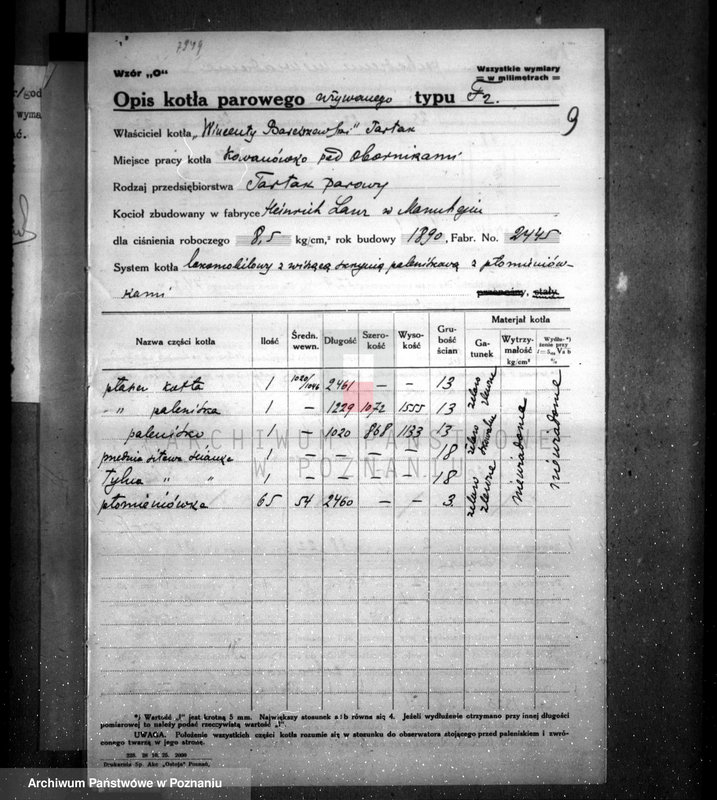 7949
Wzór „O"
Wszystkie wymiary
═ w milimetrach ═
Opis kotła parowego używanego typu F2.
9
Właściciel kotła „Wincenty Bareiszewski" Tartak
Miejsce pracy kotła Kowanówko pod Obornikami
Rodzaj przedsiębiorstwa Tartak parowy
Kocioł zbudowany w fabryce Heinrich Lanz w Mannheim
dla ciśnienia roboczego 8,5 kg/cm,² rok budowy 1890, Fabr. No. 2445
System kotła lokomobilowy z wiszącą skrzynią paleniskową z płomieniów-
kami przenośny, stały
Nazwa części kotła Ilość Średn. wewn. Długość Szero- kość Wyso- kość Gru- bość ścian Materjał kotła
Ga- tunek Wytrzy- małość kg/cm² Wydłu- *) żenie przy %
płaszcz kotła 1 1020/1046 2461 — — 13 żelazo zlewne niewiadoma niewiadome
" " paleniska 1 — 1229 1072 1555 13
palenisko 1 — 1020 868 1133 13 żelazo
przednia sitowa ścianka 1 — — — — 18
tylna " " 1 — — — — 18 żelazo zlewne
płomieniówka 65 54 2460 — — 3
ARCHIWUM PAŃSTWOWE
W POZNANIU
*) Wartość „l" jest krotną 5 mm. Największy stosunek a:b równa się 4. Jeżeli wydłużenie otrzymano przy innej długości
pomiarowej to należy podać rzeczywistą wartość „l".
UWAGA. Położenie wszystkich części kotła rozumie się w stosunku do obserwatora stojącego przed paleniskiem i zwró-
conego twarzą w jego stronę.
225. 28 10. 25. 2000
Drukarnia Sp. Akc „Ostoja" Poznań,
r/god
wyma
ść.
Archiwum Państwowe w Poznaniu